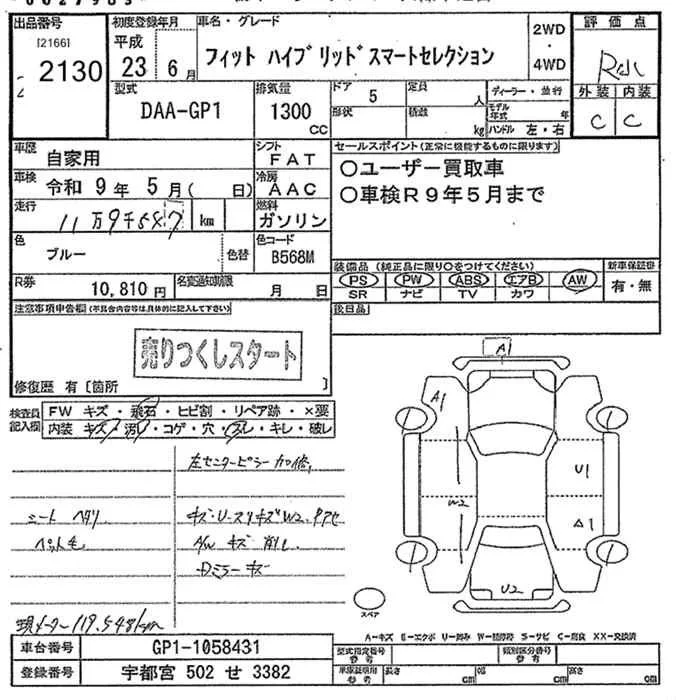 出品番号 初度登録年月 車名・グレード 評価点
[2166] 平成 2WD
2130 23年 6月 フィット ハイブリッドスマートセレクション ・ 4WD
型式 排気量 ドア 5 定員 人 ディーラー・並行 外装 内装
DAA-GP1 1300 CC 形状 積載 kg モデル年式 年 C C
ハンドル 左・右
車歴 自家用 シフト FAT セールスポイント(正常に機能するものに限ります)
車検 令和 9年 5月( 日) 冷房 AAC 〇ユーザー買取車
走行 11万9千547 km 燃料 ガソリン 〇車検R9年5月まで
色 ブルー 色替 色コード B568M
装備品(純正品に限り〇をつけてください) 新車保証書
R券 10,810円 名変通知期限 月 日 PS PW ABS エアB AW 有・無
SR ナビ TV カワ
注意事項申告欄(不具合内容等は具体的に記入して下さい) 後日品
売りつくしスタート
修復歴 有〔箇所 〕
検査員記入欄 FW キズ・飛石・ヒビ割・リペア跡・×要
内装 キズ・汚れ・コゲ・穴・スレ・キレ・破レ
A1
A1
U1
W2
△1
U2
左センターピラー加修
シート ヘタリ
ペット毛
A/W キズ 削レ
Dミラーキズ
スペア
現メーター119,548km
A−キズ E−エクボ U−凹み W−補修跡 S−サビ C−腐食 XX−交換済
車台番号 GP1-1058431 型式指定番号 参考 類別区分番号 参考
登録番号 宇都宮 502 せ 3382 車庫証明用 参考 長さ cm 幅 cm 高さ cm